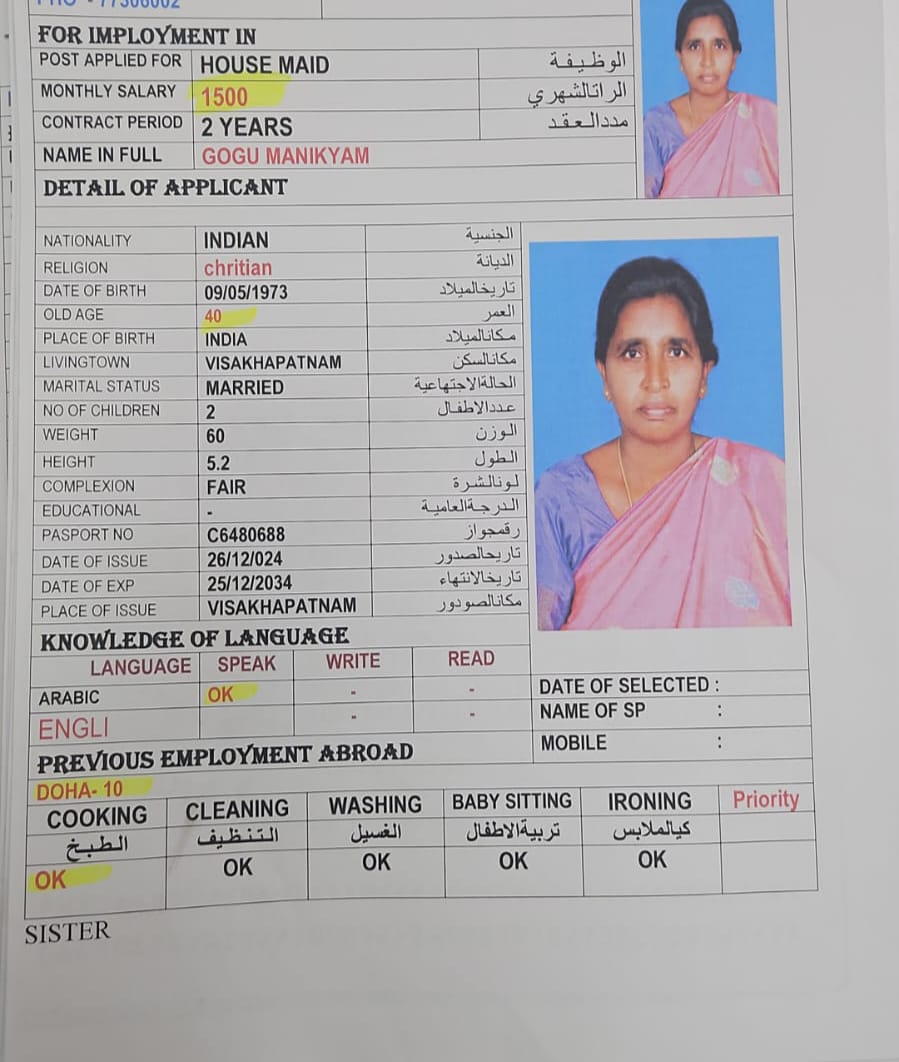 FOR IMPLOYMENT IN
POST APPLIED FOR HOUSE MAID الوظيفة
MONTHLY SALARY 1500 الراتالشهري
CONTRACT PERIOD 2 YEARS مددالعقد
NAME IN FULL GOGU MANIKYAM
DETAIL OF APPLICANT
NATIONALITY INDIAN الجنسية
RELIGION chritian الديانة
DATE OF BIRTH 09/05/1973 تاريخالميلاد
OLD AGE 40 العمر
PLACE OF BIRTH INDIA مكانالميلاد
LIVINGTOWN VISAKHAPATNAM مكانالسكن
MARITAL STATUS MARRIED الحالةالاجتهاعية
NO OF CHILDREN 2 عددالاطفال
WEIGHT 60 الوزن
HEIGHT 5.2 الطول
COMPLEXION FAIR لونالشرة
EDUCATIONAL - الدرجةالعامية
PASPORT NO C6480688 رقمجواز
DATE OF ISSUE 26/12/024 تاريحالصدور
DATE OF EXP 25/12/2034 تاريخالانتهاء
PLACE OF ISSUE VISAKHAPATNAM مكانالصودور
KNOWLEDGE OF LANGUAGE
LANGUAGE SPEAK WRITE READ
ARABIC OK - -
ENGLI - -
DATE OF SELECTED :
NAME OF SP :
MOBILE :
PREVIOUS EMPLOYMENT ABROAD
DOHA- 10
COOKING CLEANING WASHING BABY SITTING IRONING Priority
الطبخ التنظيف الغسيل تربيةالاطفال كيالملابس
OK OK OK OK OK
SISTER